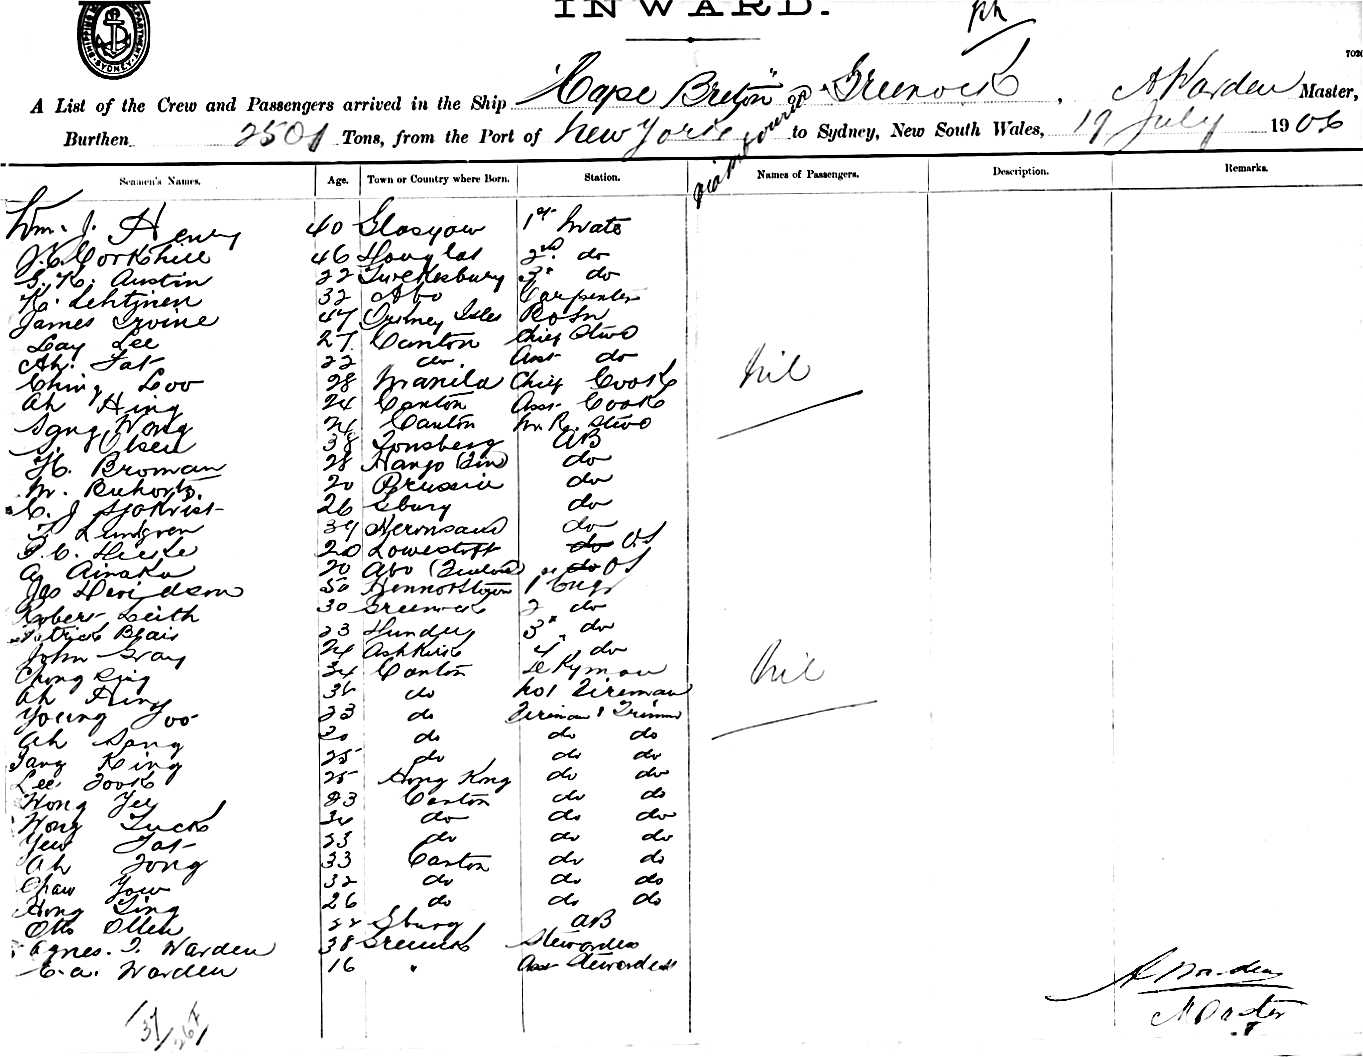 INWARD.
SHIPPING DEPARTMENT SYDNEY
A List of the Crew and Passengers arrived in the Ship "Cape Breton" of Greenock, A Warden Master,
Burthen 2501 Tons, from the Port of New York to Sydney, New South Wales, 19 July 1906
Seamen's Names. Age. Town or Country where Born. Station. Names of Passengers. Description. Remarks.
Wm. J. Henry 40 Glasgow 1st Mate
J. C. Corkhill 46 Douglas 2nd do
S. K. Austin 22 Tewkesbury 3rd do
K. Lehtinen 32 Abo Carpenter
James Irvine 47 Orkney Isles BoSn
Lay Lee 27 Canton Chief Stwd
Ah Fat 22 do Asst do
Ching Loo 28 Manila Chief Cook
Ah Hing 24 Canton Asst Cook
Sang Wong 24 Canton M. R. Stwd
S. Olsen 38 Tonsberg AB
H. Broman 28 Hango (Fin) do
M. 20 Prussia do
C. J. Sjokvist 26 Gburg do
F Lundgren 39 Hernosand do
20 Lowestoft do OS
A Ainaka 20 Abo do OS
Jas Davidson 50 1 Engr
Robert Leith 30 Greenock 2 do
Patrick Blair 23 Dundee 3rd do
John Gray 24 4 do
Chong Sing 34 Canton Dkyman
Ah Hing 36 do No1 Fireman
Young Foo 23 do Fireman & Trimmer
Ah Sang 20 do do do
Tang King 25 do do do
Lee Fook 25 Hong Kong do do
Wong Yee 23 Canton do do
Wong Tuck 36 do do do
Yew Fat 23 do do do
Ah Fong 33 Canton do do
Chaw Yow 32 do do do
Hong Ting 26 do do do
Otto Ollen 22 Gburg AB
Agnes. T. Warden 38 Greenock Stewardess
C. A. Warden 16 " Asst Stewardess
Nil
Nil
A Warden
Master
37